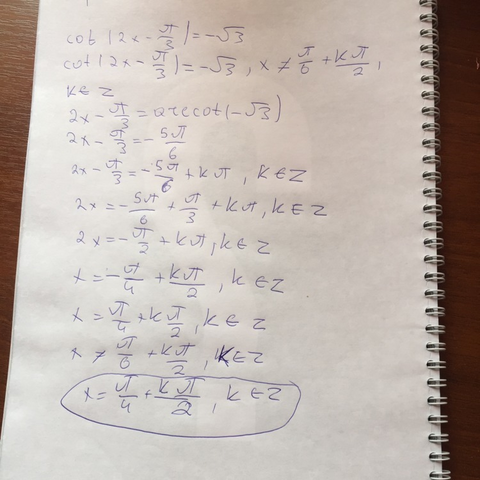 cot(2x - π/3) = -√3
cot(2x - π/3) = -√3, x ≠ π/6 + kπ/2,
k ∈ Z
2x - π/3 = arccot(-√3)
2x - π/3 = -5π/6
2x - π/3 = -5π/6 + kπ, k ∈ Z
2x = -5π/6 + π/3 + kπ, k ∈ Z
2x = -π/2 + kπ, k ∈ Z
x = -π/4 + kπ/2, k ∈ Z
x = π/4 + kπ/2, k ∈ Z
x ≠ π/6 + kπ/2, k ∈ Z
x = π/4 + kπ/2, k ∈ Z